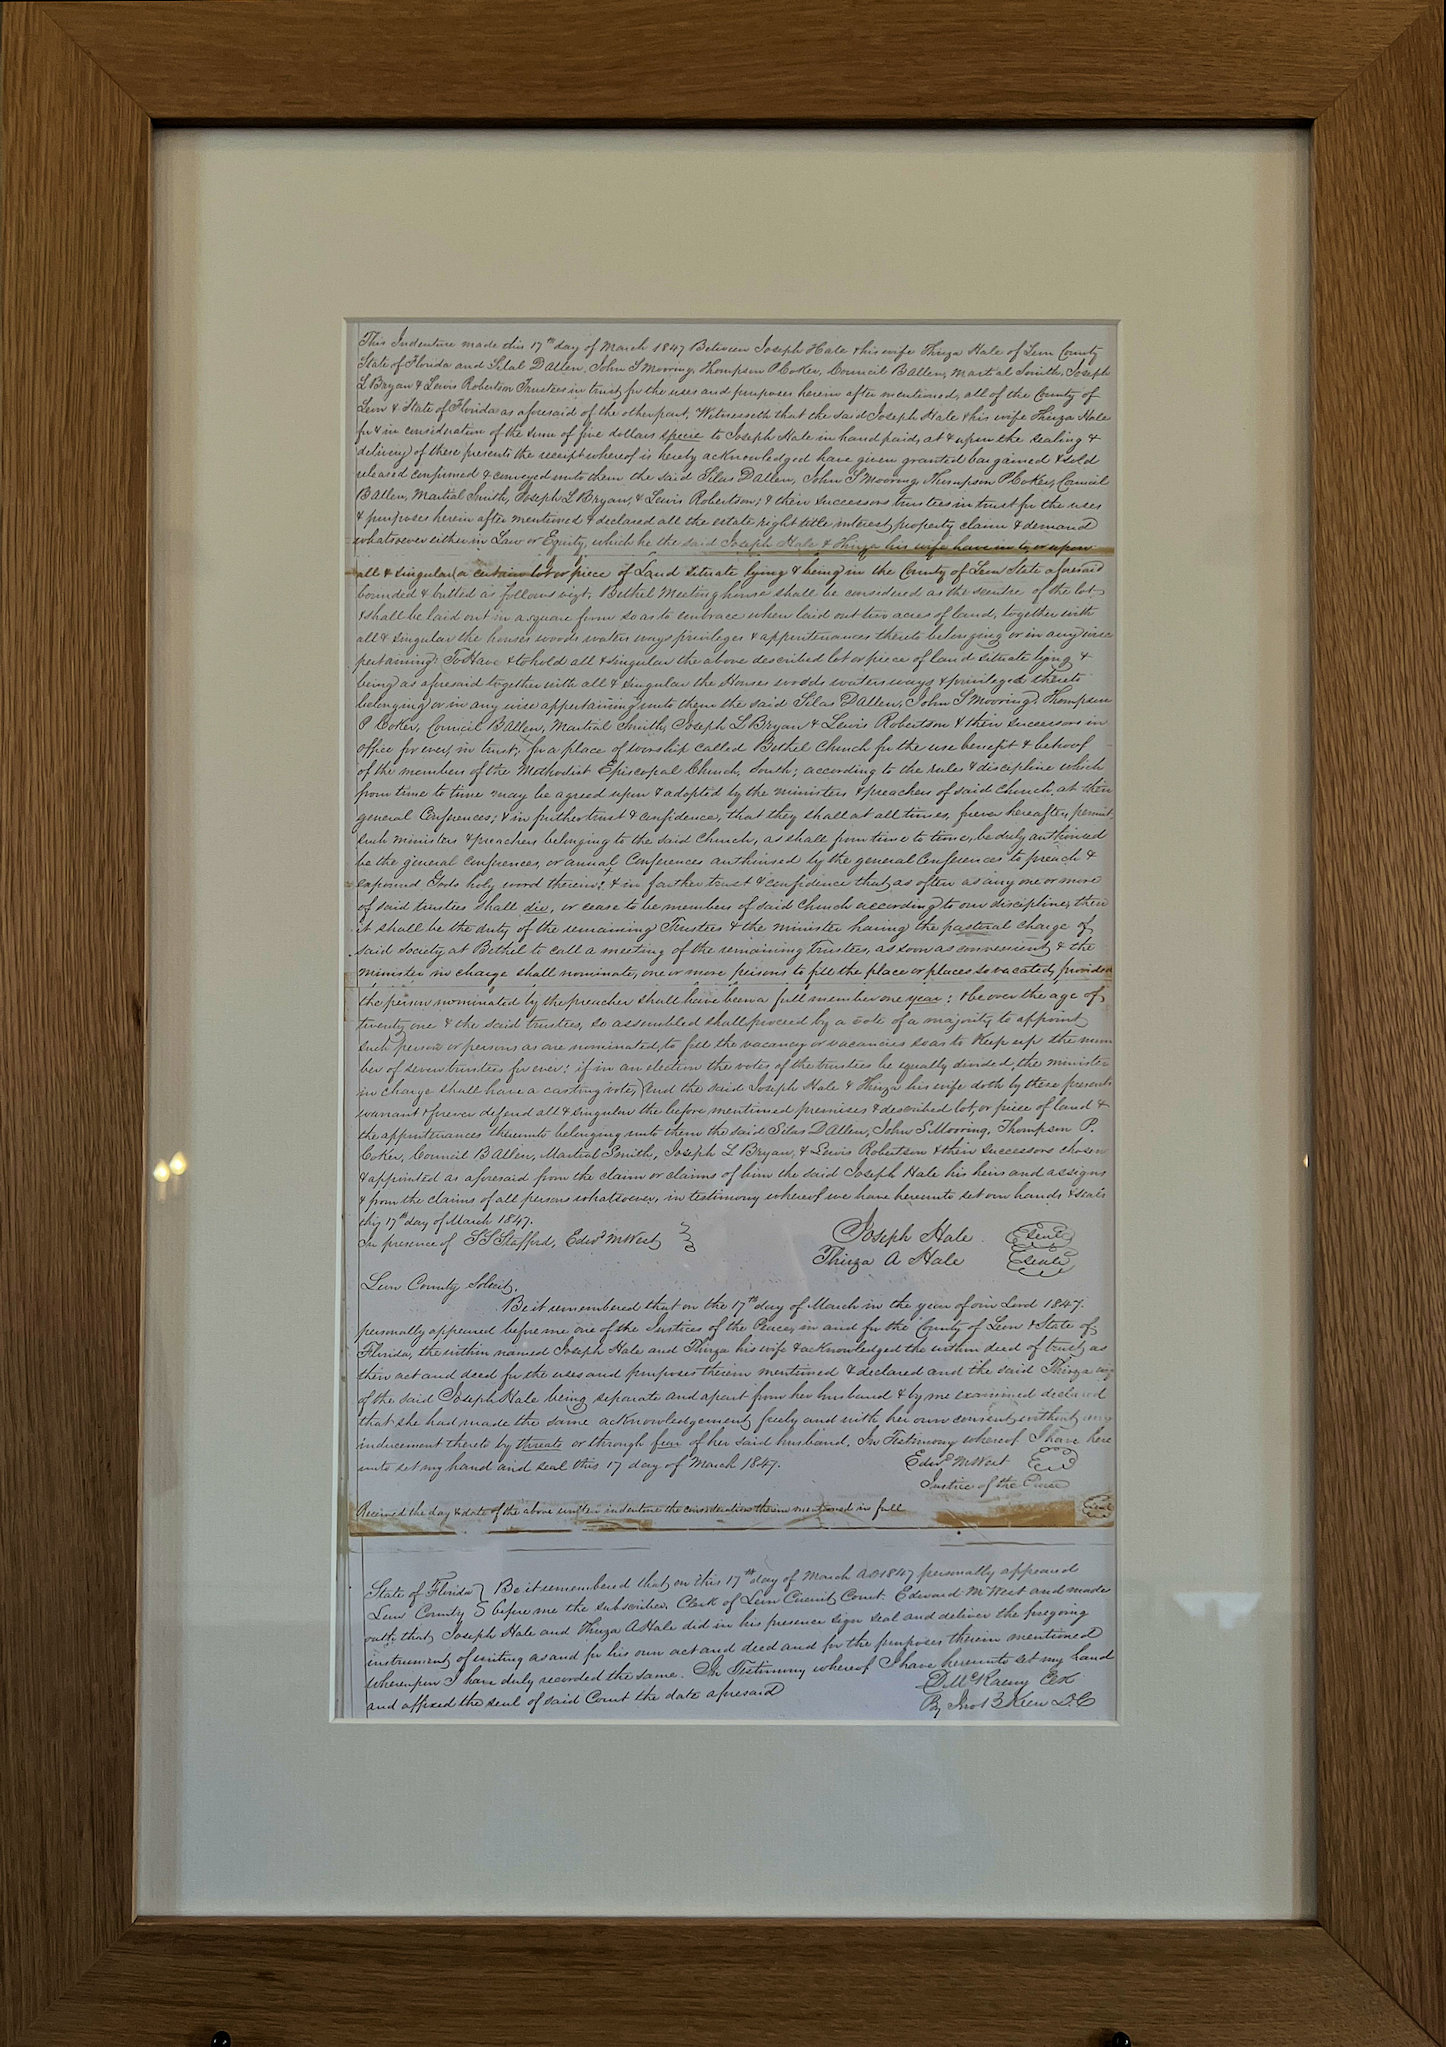 This Indenture made this 17th day of March 1847 Between Joseph Hale & his wife Thirza Hale of Leon County
State of Florida and Silas D Allen, John S Mooring, Thompson P Coker, Council B Allen, Martial Smith, Joseph
L Bryan & Lewis Robertson Trustees in trust, for the uses and purposes herein after mentioned, all of the County of
Leon & State of Florida as aforesaid of the other part, Witnesseth that the said Joseph Hale & his wife Thirza Hale
for & in consideration of the sum of five dollars specie to Joseph Hale in hand paid, at & upon the sealing &
delivery of these presents the receipt whereof is hereby acknowledged have given granted bargained & sold
released confirmed & conveyed unto them the said Silas D Allen, John S Mooring, Thompson P Coker, Council
B Allen, Martial Smith, Joseph L Bryan, & Lewis Robertson; & their successors trustees in trust for the uses
& purposes herein after mentioned & declared all the estate right title interest property claim & demand
whatsoever either in Law or Equity, which he the said Joseph Hale & Thirza his wife have in to, or upon
all & singular, a certain lot or piece of Land situate lying & being in the County of Leon State aforesaid
bounded & butted as follows vizt, Bethel Meeting house shall be considered as the centre of the lot
& shall be laid out in a square form so as to embrace when laid out two acres of land, together with
all & singular the houses woods waters ways privileges & appertenances thereto belonging or in any wise
pertaining: To Have & to hold all & singular the above described lot or piece of land situate lying &
being as aforesaid together with all & singular the Houses woods waters ways & privileges thereto
belonging or in any wise appertaining unto them the said Silas D Allen, John S Mooring, Thompson
P Coker, Council B Allen, Martial Smith, Joseph L Bryan & Lewis Robertson & their successors in
office for ever, in trust, for a place of worship called Bethel Church for the use benefit & behoof
of the members of the Methodist Episcopal Church, South; according to the rules & discipline which
from time to time may be agreed upon & adopted by the ministers & preachers of said Church, at their
general Conferences; & in further trust & confidence, that they shall at all times, forever hereafter, permit
such ministers & preachers belonging to the said Church, as shall from time to time, be duly authorised
be the general Conferences, or annual Conferences authorised by the general Conferences to preach &
expound Gods holy word therein; & in farther trust & confidence that, as often as any one or more
of said trustees shall die, or cease to be members of said Church according to our discipline, then
it shall be the duty of the remaining Trustees & the minister having the pastoral charge of
said Society at Bethel to call a meeting of the remaining Trustees, as soon as convenient, & the
minister in charge shall nominate, one or more persons to fill the place or places so vacated, provided
the person nominated by the preacher shall have been a full member one year; & be over the age of
twenty one & the said trustees, so assembled shall proceed by a vote of a majority to appoint
such person or persons as are nominated, to fill the vacancy or vacancies so as to Keep up the num
ber of seven trustees for ever: if in an election the votes of the trustees be equally divided, the minister
in charge shall have a casting vote, And the said Joseph Hale & Thirza his wife doth by these presents
warrant & forever defend all & singular the before mentioned premises & described lot, or piece of land &
the appertenances thereunto belonging unto them the said Silas D Allen, John S Mooring, Thompson P.
Coker, Council B Allen, Martial Smith, Joseph L Bryan, & Lewis Robertson & their successors chosen
& appointed as aforesaid from the claim or claims of him the said Joseph Hale his heirs and assigns
& from the claims of all persons whatsoever, in testimony whereof we have hereunto set our hands & seals
this 17th day of March 1847.
In presence of S S Stafford, Edwd McWest Joseph Hale Seal
Thirza A Hale Seal
Leon County
Be it remembered that on the 17th day of March in the year of our Lord 1847.
personally appeared before me one of the Justices of the Peace, in and for the County of Leon & State of
Florida, the within named Joseph Hale and Thirza his wife & acknowledged the within deed of trust, as
their act and deed for the uses and purposes therein mentioned & declared and the said Thirza wife
of the said Joseph Hale being separate and apart from her husband & by me examined declared
that she had made the same acknowledgement, freely and with her own consent, without any
inducement thereto by threats or through fear of her said husband. In Testimony whereof I have here
unto set my hand and seal this 17 day of March 1847. Edwd McWest
Justice of the Peace
Received the day & date of the above written indenture the consideration therein mentioned in full Seal
State of Florida Be it remembered that on this 17th day of March AD 1847 personally appeared
Leon County before me the subscriber, Clerk of Leon Circuit Court. Edward McWest and made
oath that, Joseph Hale and Thirza A Hale did in his presence sign seal and deliver the foregoing
instrument of writing as and for his own act and deed and for the purposes therein mentioned
whereupon I have duly recorded the same. In Testimony whereof I have hereunto set my hand
and affixed the seal of said Court the date aforesaid
By D.C